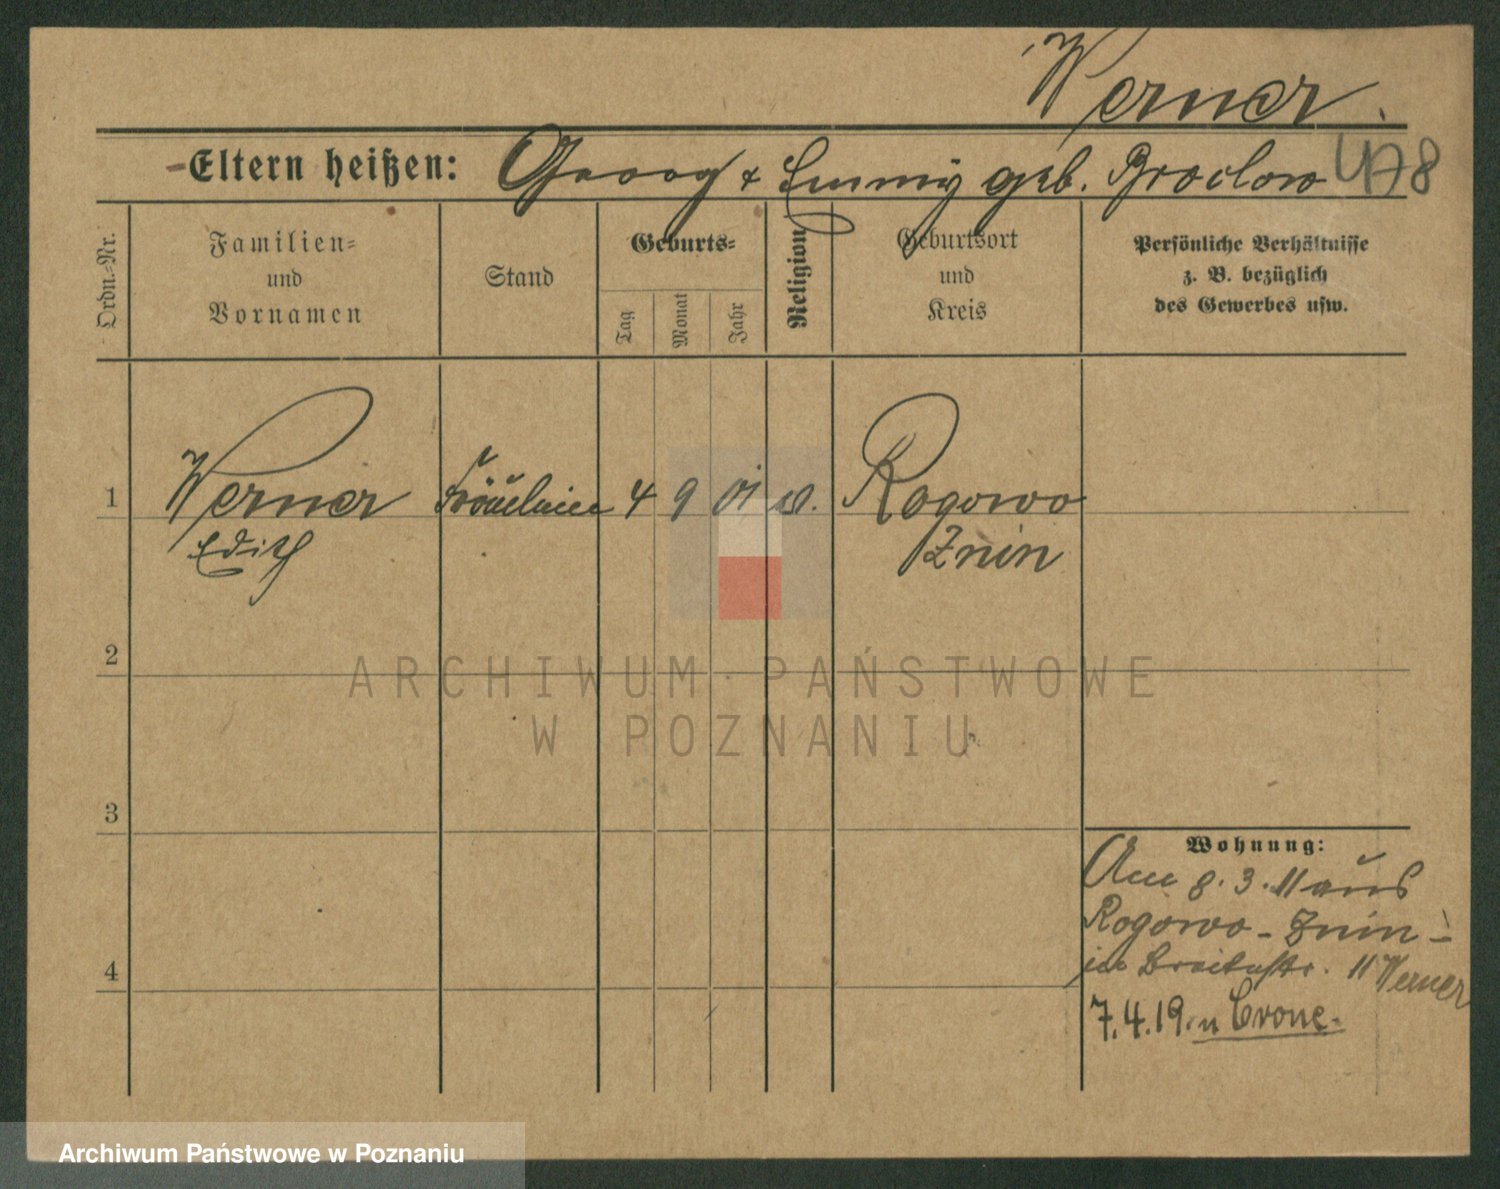 Werner.
Eltern heißen: Georg & Emmy geb. Broclow 478
Ordn.-Nr.
Familien-
und
Vornamen
Stand
Geburts-
Tag
Monat
Jahr
Religion
Geburtsort
und
Kreis
Persönliche Verhältnisse
z. B. bezüglich
des Gewerbes usw.
1 Werner Fräulein 4 9 01 Rogowo
Edith Znin
2
3
4
Wohnung:
Am 8.3.11 aus
Rogowo - Znin -
in Breitestr. 11 Werner
7.4.19. n Crone.
ARCHIWUM PAŃSTWOWE
W POZNANIU
Archiwum Państwowe w Poznaniu